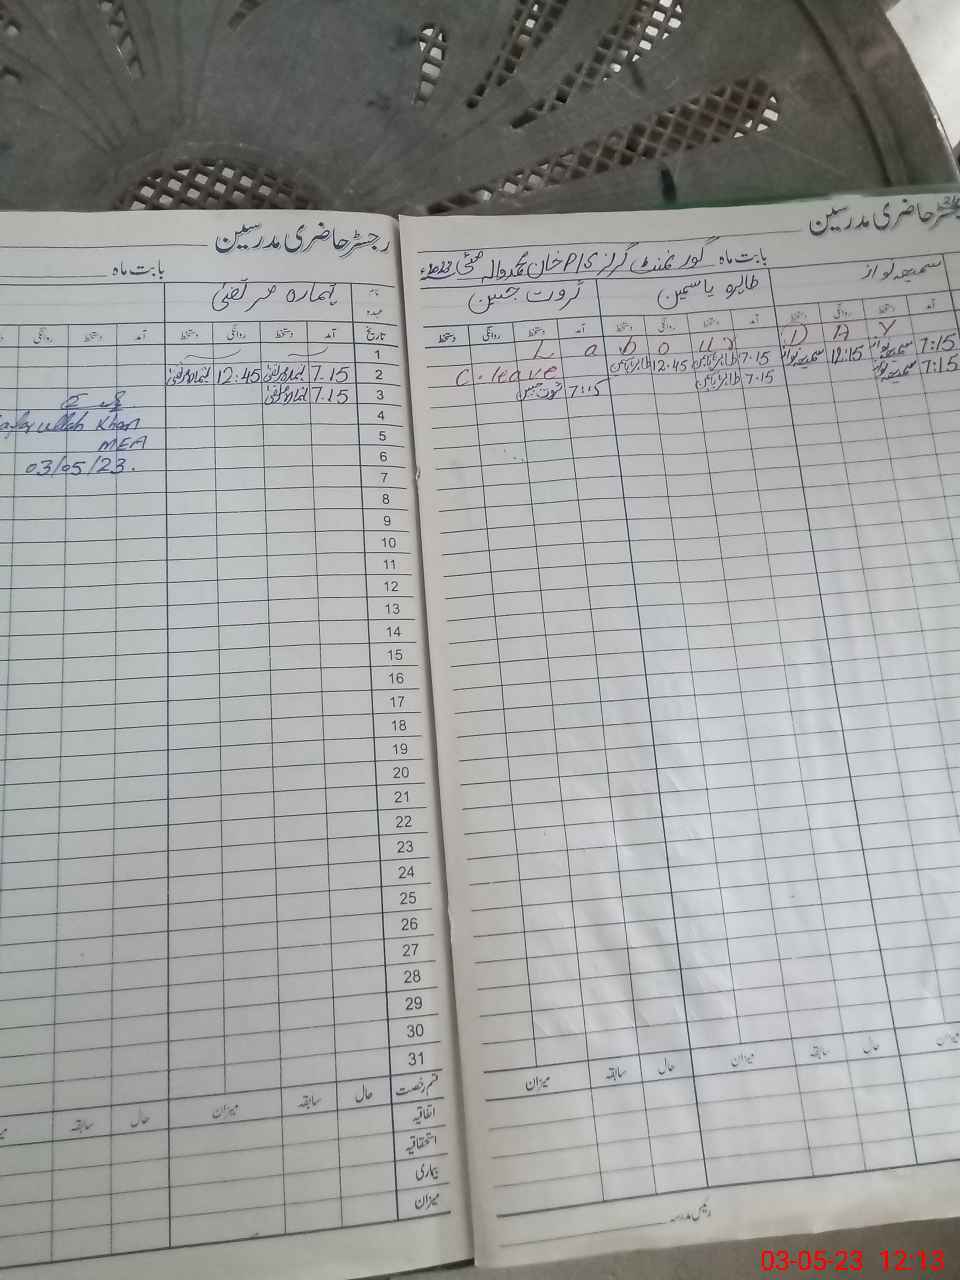 رجسٹر حاضری مدرسین
بابت ماہ گورنمنٹ گرلز P/S خان محمد والہ مئی 2023ء
سمیعہ نواز
طاہرہ یاسمین
ثروت جبین
آمد دستخط روانگی دستخط آمد دستخط روانگی دستخط آمد دستخط روانگی دستخط
Labour DAY
7:15 سمیعہ نواز 12:15 سمیعہ نواز 7.15 طاہرہ یاسمین 12.45 طاہرہ یاسمین C.leave
7:15 سمیعہ نواز 7.15 طاہرہ یاسمین 7:15 ثروت جبین
میزان حال سابقہ میزان حال سابقہ میزان
رئیس مدرسہ
رجسٹر حاضری مدرسین
بابت ماہ
نام عہدہ
مرتضیٰ
تاریخ آمد دستخط روانگی دستخط آمد دستخط روانگی
1
2 7.15 12:45
3 7.15
4
ullah Khan
5
MEA
6
03/05/23.
7
8
9
10
11
12
13
14
15
16
17
18
19
20
21
22
23
24
25
26
27
28
29
30
31
قسم رخصت حال سابقہ میزان حال سابقہ
اتفاقیہ
استحقاقیہ
بیماری
میزان
03-05-23 12:13